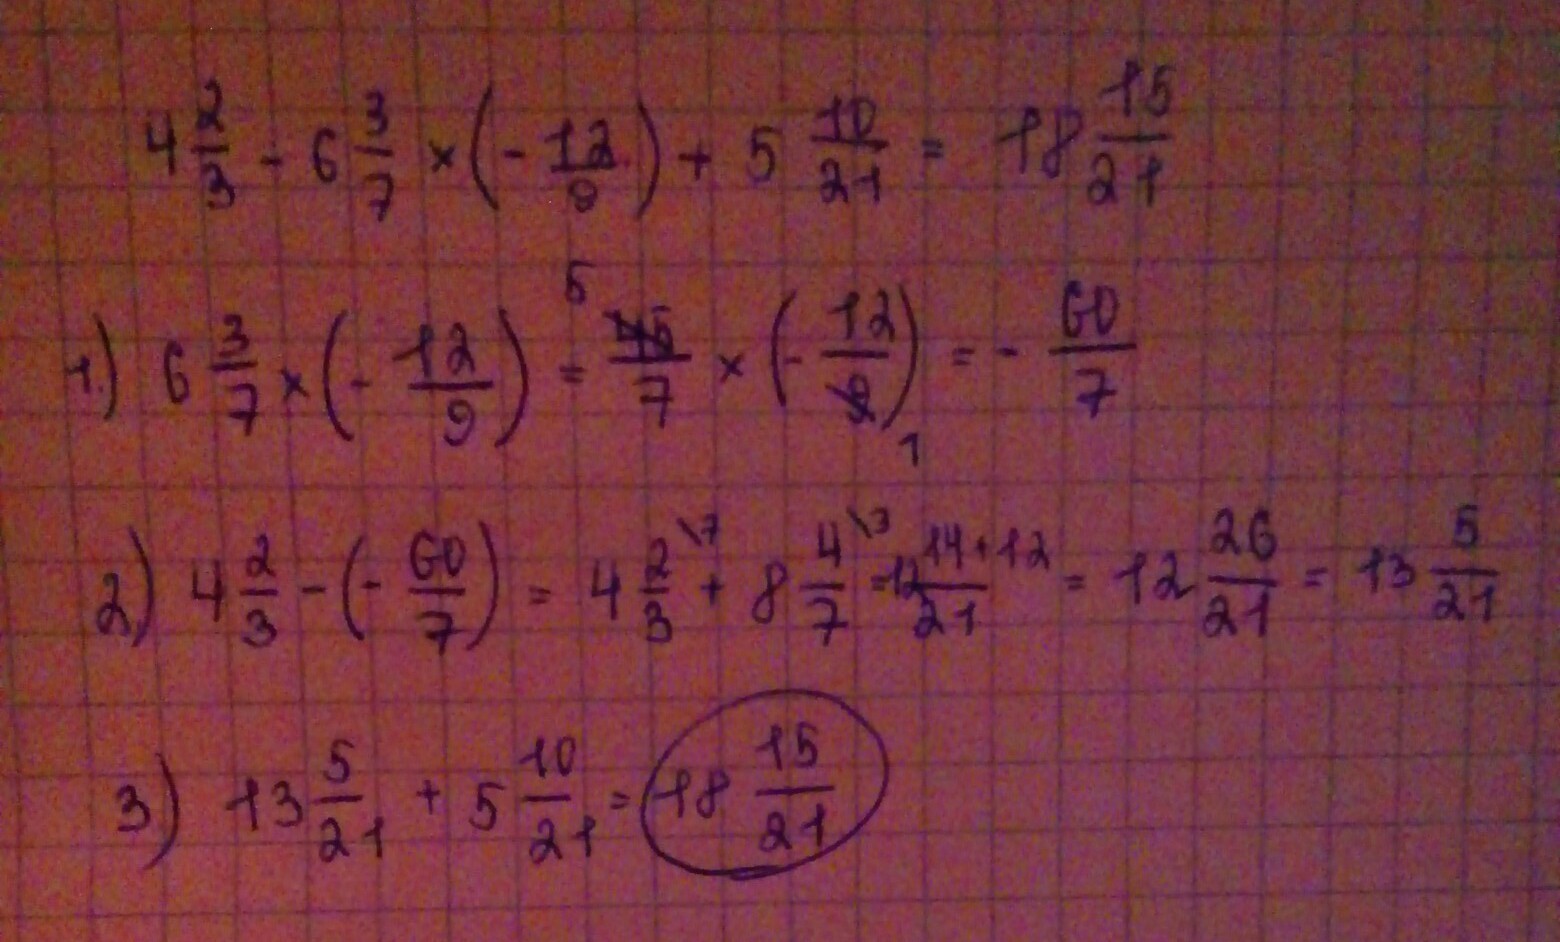 4 2/3 - 6 3/7 × (- 12/9) + 5 10/21 = 18 15/21
1.) 6 3/7 × (- 12/9) = 45/7 5 × (- 12/9) 1 = - 60/7
2) 4 2/3 - (- 60/7) = 4 2/3 \7 + 8 4/7 \3 = 12 14+12/21 = 12 26/21 = 13 5/21
3) 13 5/21 + 5 10/21 = 18 15/21